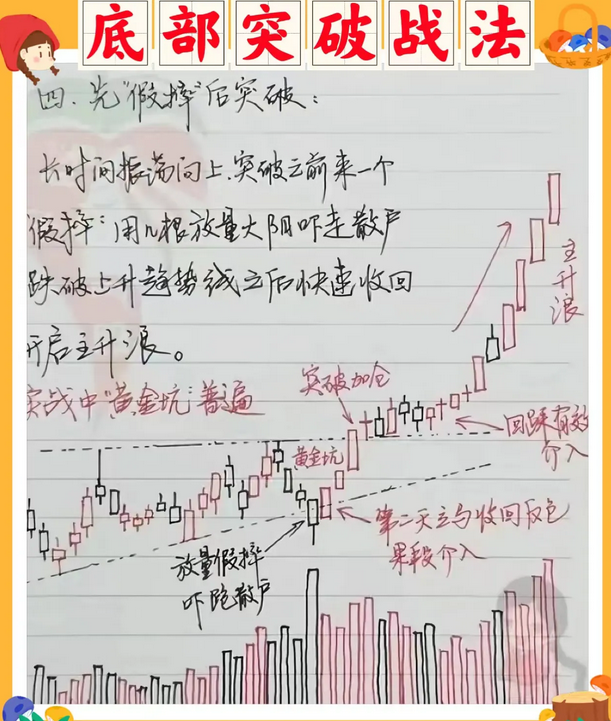 底部突破战法
四.先“假摔”后突破：
长时间振荡向上.突破之前来一个
假摔：用几根放量大阴吓走散户
跌破上升趋势线之后快速收回
开启主升浪。
实战中“黄金坑”普遍
突破加仓
主升浪
回踩有效
介入
黄金坑
第二天立马收回反包
果断介入
放量假摔
吓跑散户